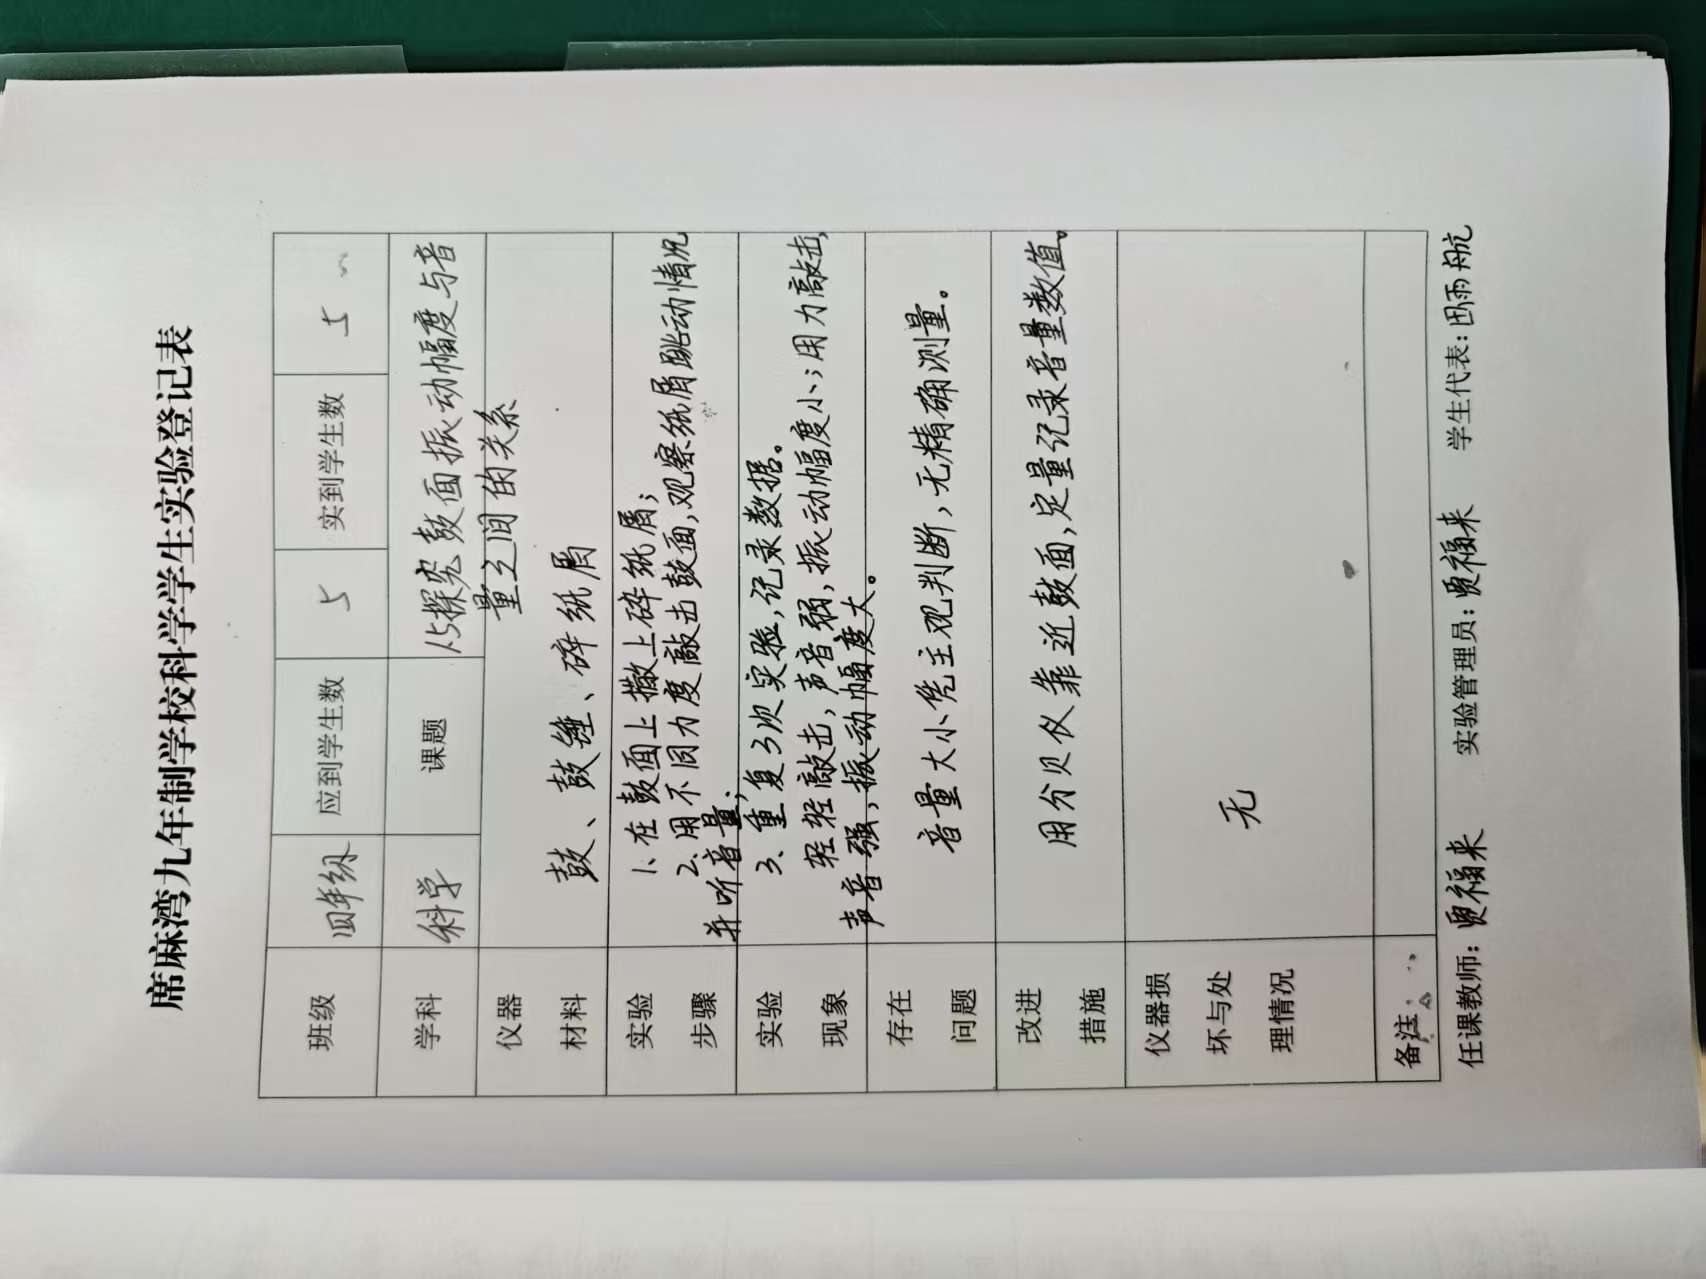 席麻湾九年制学校科学学生实验登记表
班级 四年级 应到学生数 5 实到学生数 5
学科 科学 课题 15探究鼓面振动幅度与音
量之间的关系
仪器
材料
鼓、鼓锤、碎纸屑
实验
步骤
1、在鼓面上撒上碎纸屑;
2、用不同力度敲击鼓面,观察纸屑跳动情况
并听音量;
3、重复3次实验,记录数据。
实验
现象
轻轻敲击,声音弱,振动幅度小;用力敲击,
声音强,振动幅度大。
存在
问题
音量大小凭主观判断,无精确测量。
改进
措施
用分贝仪靠近鼓面,定量记录音量数值。
仪器损
坏与处
理情况
无
备注
任课教师:贾福来 实验管理员:贾福来 学生代表:田雨航